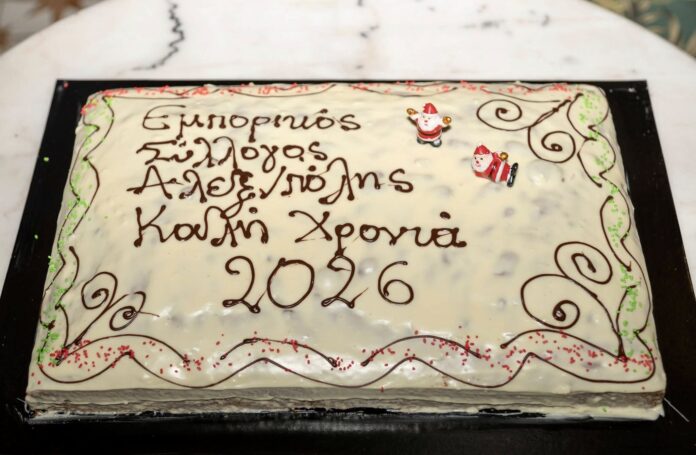 Εμπορικός
Σύλλογος
Αλεξ/πόλης
Καλή Χρονιά
2026